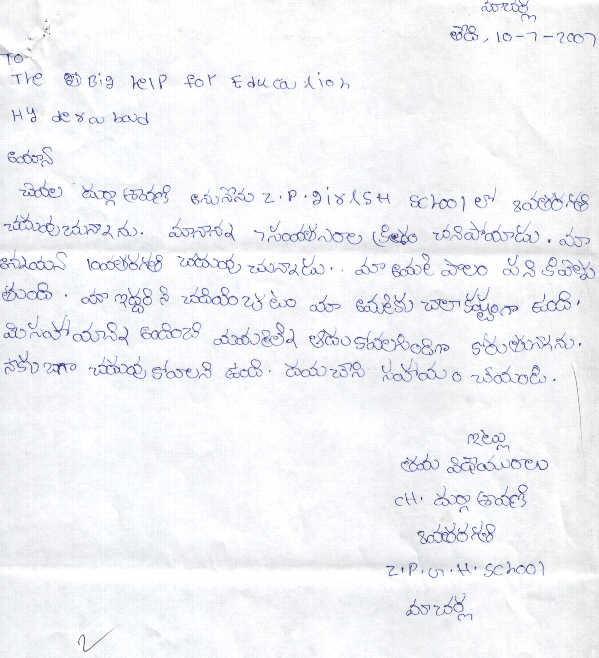 మాచర్ల
తేది, 10-7-2007
TO
The Big help for Education
Hyderabad
అయ్యా
చెరల దుర్గా శ్రావణి అనునేను Z.P.girlSH SCHool లో 8వతరగతి
చదువుచున్నాను. మానాన్న 7సంవత్సరాల క్రితం చనిపోయాడు. మా
అన్నయ్య 10వతరగతి చదువు చున్నాడు.. మా అమ్మ పొలం పనికి వెళ్ళు
తుంది. మా ఇద్దరిని చదివించటం మా అమ్మకు చాలా కష్టంగా ఉంది.
మీ సహాయాన్ని అందించి మమ్మల్ని ఆదుకోవలసిందిగా కోరుతున్నాను.
నాకు బాగా చదువు కోవాలని ఉంది. దయచేసి సహాయం చేయండి.
ఇట్లు
తమ విధేయురాలు
CH. దుర్గా శ్రావణి
8వతరగతి
Z.P.G.H.SCHOOl
మాచర్ల
2